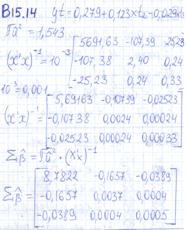 B15.14 ŷt=0,279+0,123×t₂-0,029×t₃
σ̂² = 1,543
(x'x)⁻¹=10⁻³ [5691,63 -107,39 -25,23
-107,38 2,40 0,24
-25,23 0,24 0,33
10⁻³=0,001
(x'x)⁻¹ = [5,69163 -0,10739 -0,02523
-0,10738 0,0024 0,00024
-0,02523 0,00024 0,00033]
Σβ̂ = σ̂² · (x'x)⁻¹
Σβ̂ = [8,7822 -0,1657 -0,0389
-0,1657 0,0037 0,0004
-0,0389 0,0004 0,0005]